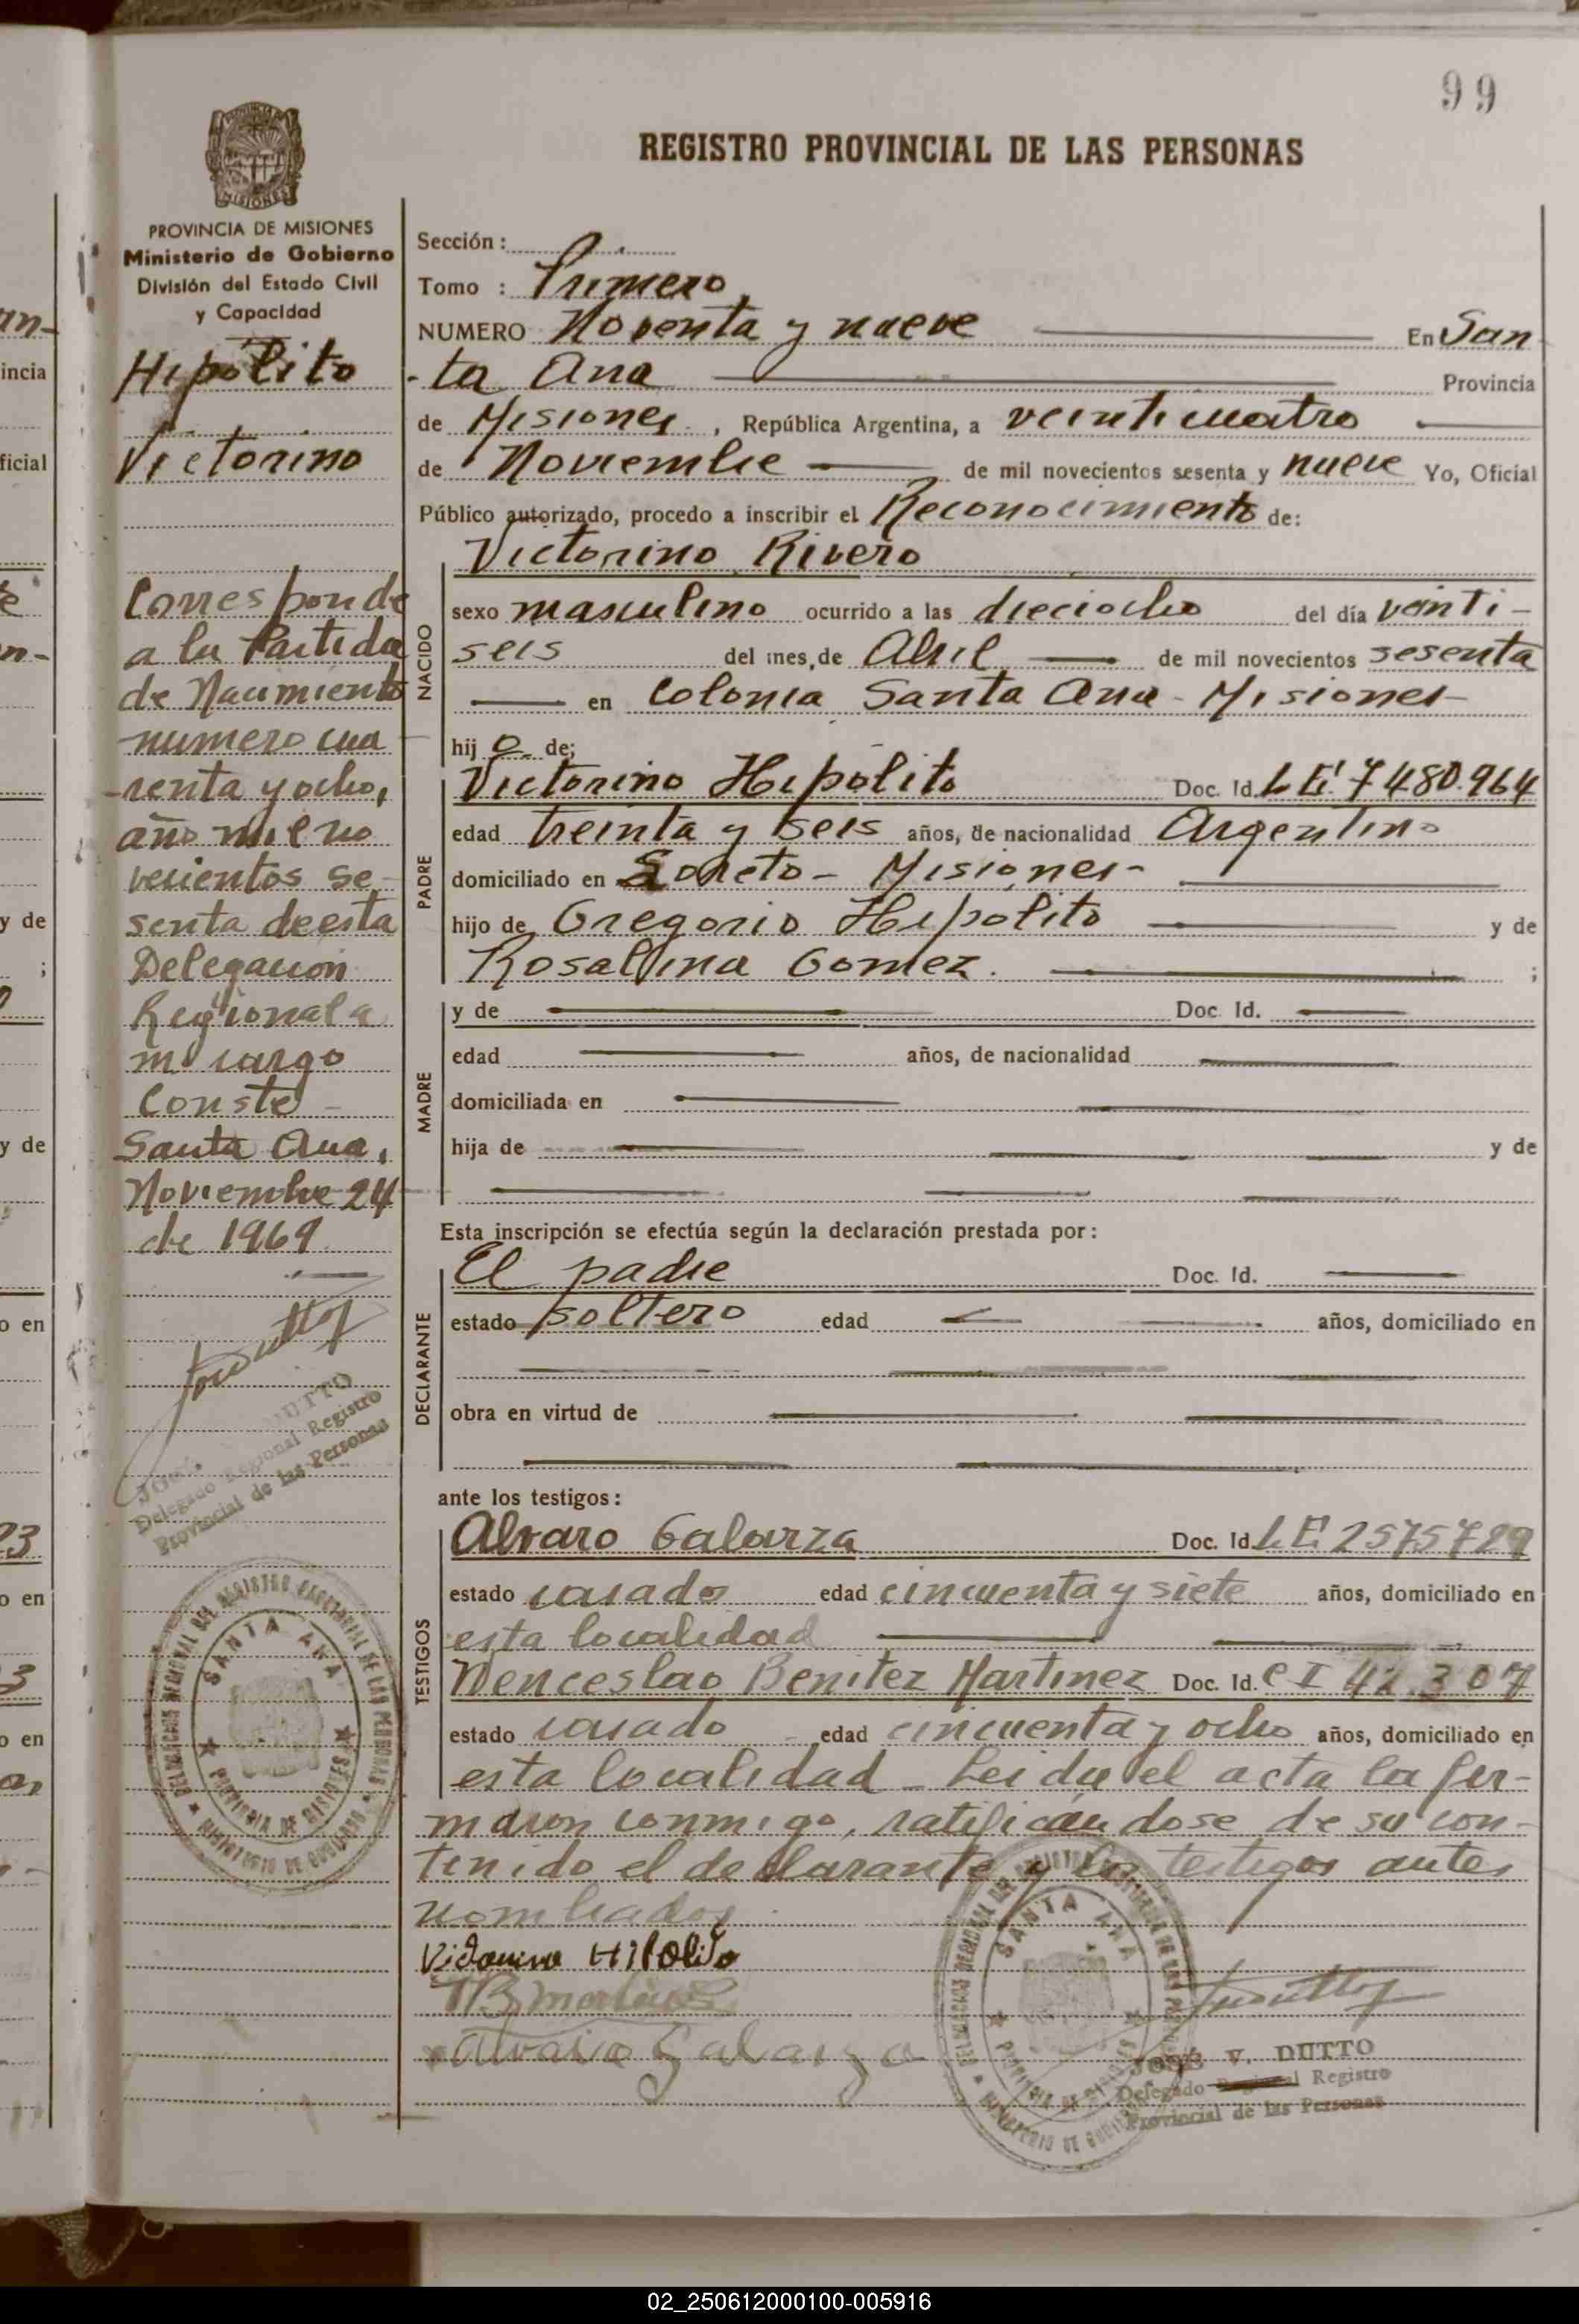 99
REGISTRO PROVINCIAL DE LAS PERSONAS
PROVINCIA DE MISIONES
Ministerio de Gobierno
División del Estado Civil
y Capacidad
Hipólito
Victorino
Corresponde
a la Partida
de Nacimiento
numero cua
renta y ocho,
año mil no
vecientos se
senta de esta
Delegación
Regional a
mi cargo
Conste -
Santa Ana,
Noviembre 24
de 1969
Delegado Regional Registro
Provincial de las Personas
SANTA ANA
PROVINCIA DE MISIONES
MINISTERIO DE GOBIERNO
Sección :
Tomo : Primero
NUMERO Noventa y nueve En San
-ta Ana Provincia
de Misiones , República Argentina, a veinticuatro
de Noviembre de mil novecientos sesenta y nueve Yo, Oficial
Público autorizado, procedo a inscribir el Reconocimiento de:
NACIDO
Victorino Rivero
sexo masculino ocurrido a las dieciocho del día veinti-
seis del mes de Abril de mil novecientos sesenta
en Colonia Santa Ana - Misiones
hij o de;
PADRE
Victorino Hipólito Doc. Id. LE. 7480.964
edad treinta y seis años, de nacionalidad Argentino
domiciliado en Loreto - Misiones -
hijo de Gregorio Hipólito y de
Rosalina Gomez. ;
MADRE
y de Doc. Id.
edad años, de nacionalidad
domiciliada en
hija de y de
Esta inscripción se efectúa según la declaración prestada por:
DECLARANTE
El padre Doc. Id.
estado soltero edad años, domiciliado en
obra en virtud de
ante los testigos:
TESTIGOS
Alvaro Galarza Doc. Id. LE 2575729
estado casado edad cincuenta y siete años, domiciliado en
esta localidad
Wenceslao Benitez Martinez Doc. Id. CI 42.307
estado casado edad cincuenta y ocho años, domiciliado en
esta localidad - Leida el acta la fir-
maron conmigo, ratificándose de su con-
tenido el declarante y los testigos antes
nombrados
Victorino Hipolito
Alvaro Galarza
SANTA ANA
JOSÉ V. DUTTO
Delegado Regional Registro
Provincial de las Personas
02_250612000100-005916